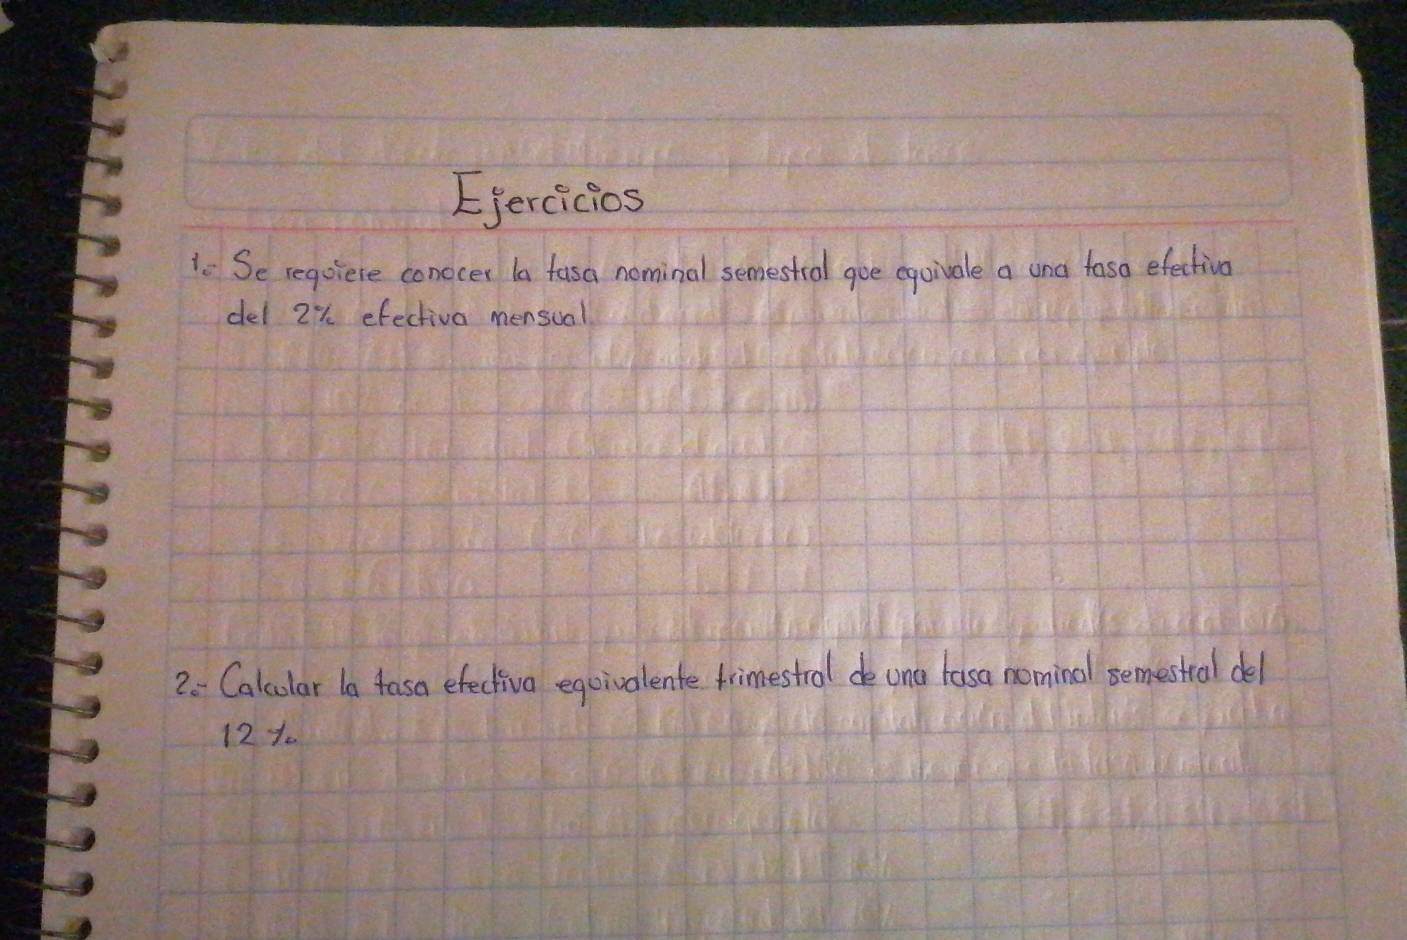 Ejercicios
1.- Se requiere conocer la tasa nominal semestral que equivale a una tasa efectiva
del 2% efectiva mensual.
2.- Calcular la tasa efectiva equivalente trimestral de una tasa nominal semestral del
12 %.